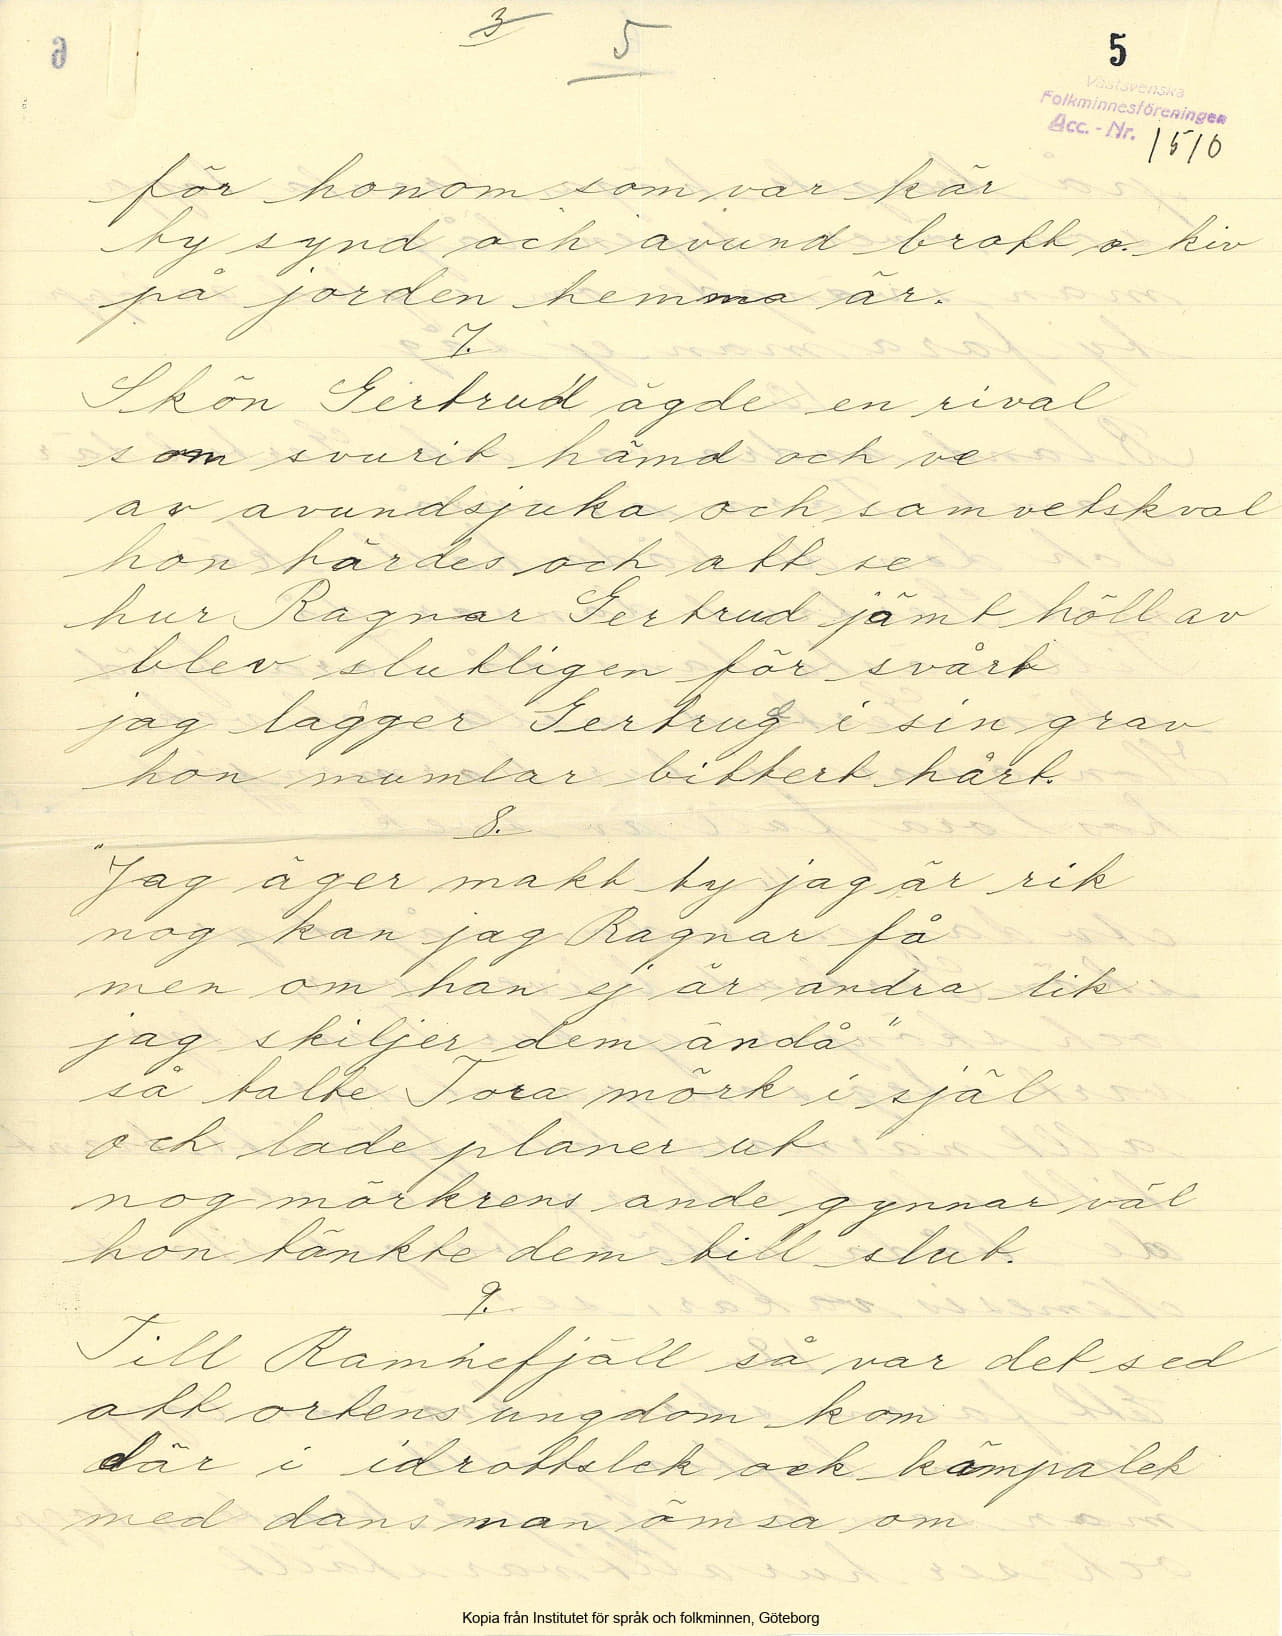 3
5
5
6
Västsvenska
Folkminnesföreningen
Acc. - Nr. 1510
för honom som var kär
ty synd och avund brott o. kiv
på jorden hemma är.
7.
Skön Gertrud ägde en rival
som svurit hämd och ve
av avundsjuka och samvetskval
hon tärdes och att se
hur Ragnar Gertrud jämt höll av
blev slutligen för svårt
jag lägger Gertrud i sin grav
hon mumlar bittert hårt.
8.
"Jag äger makt ty jag är rik
nog kan jag Ragnar få
men om han ej är andra lik
jag skiljer dem ändå"
så talte Tora mörk i själ
och lade planer ut
nog mörkrens ande gynnar väl
hon tänkte dem till slut.
9.
Till Ramnefjäll så var det sed
att ortens ungdom kom
där i idrottslek ock kämpalek
med dans man ömsa om
Kopia från Institutet för språk och folkminnen, Göteborg